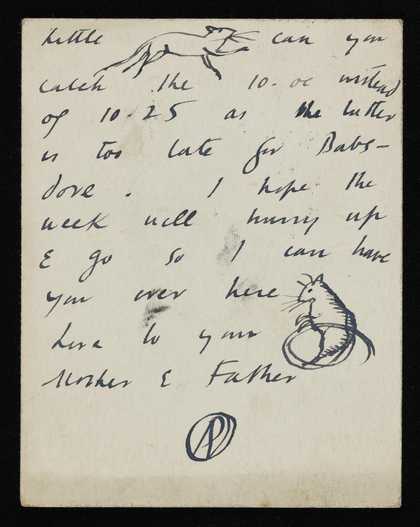 little can you
catch the 10.00 instead
of 10.25 as the latter
is too late for Babs-
dove. I hope the
week will hurry up
& go so I can have
you over here
Love to your
Mother & Father